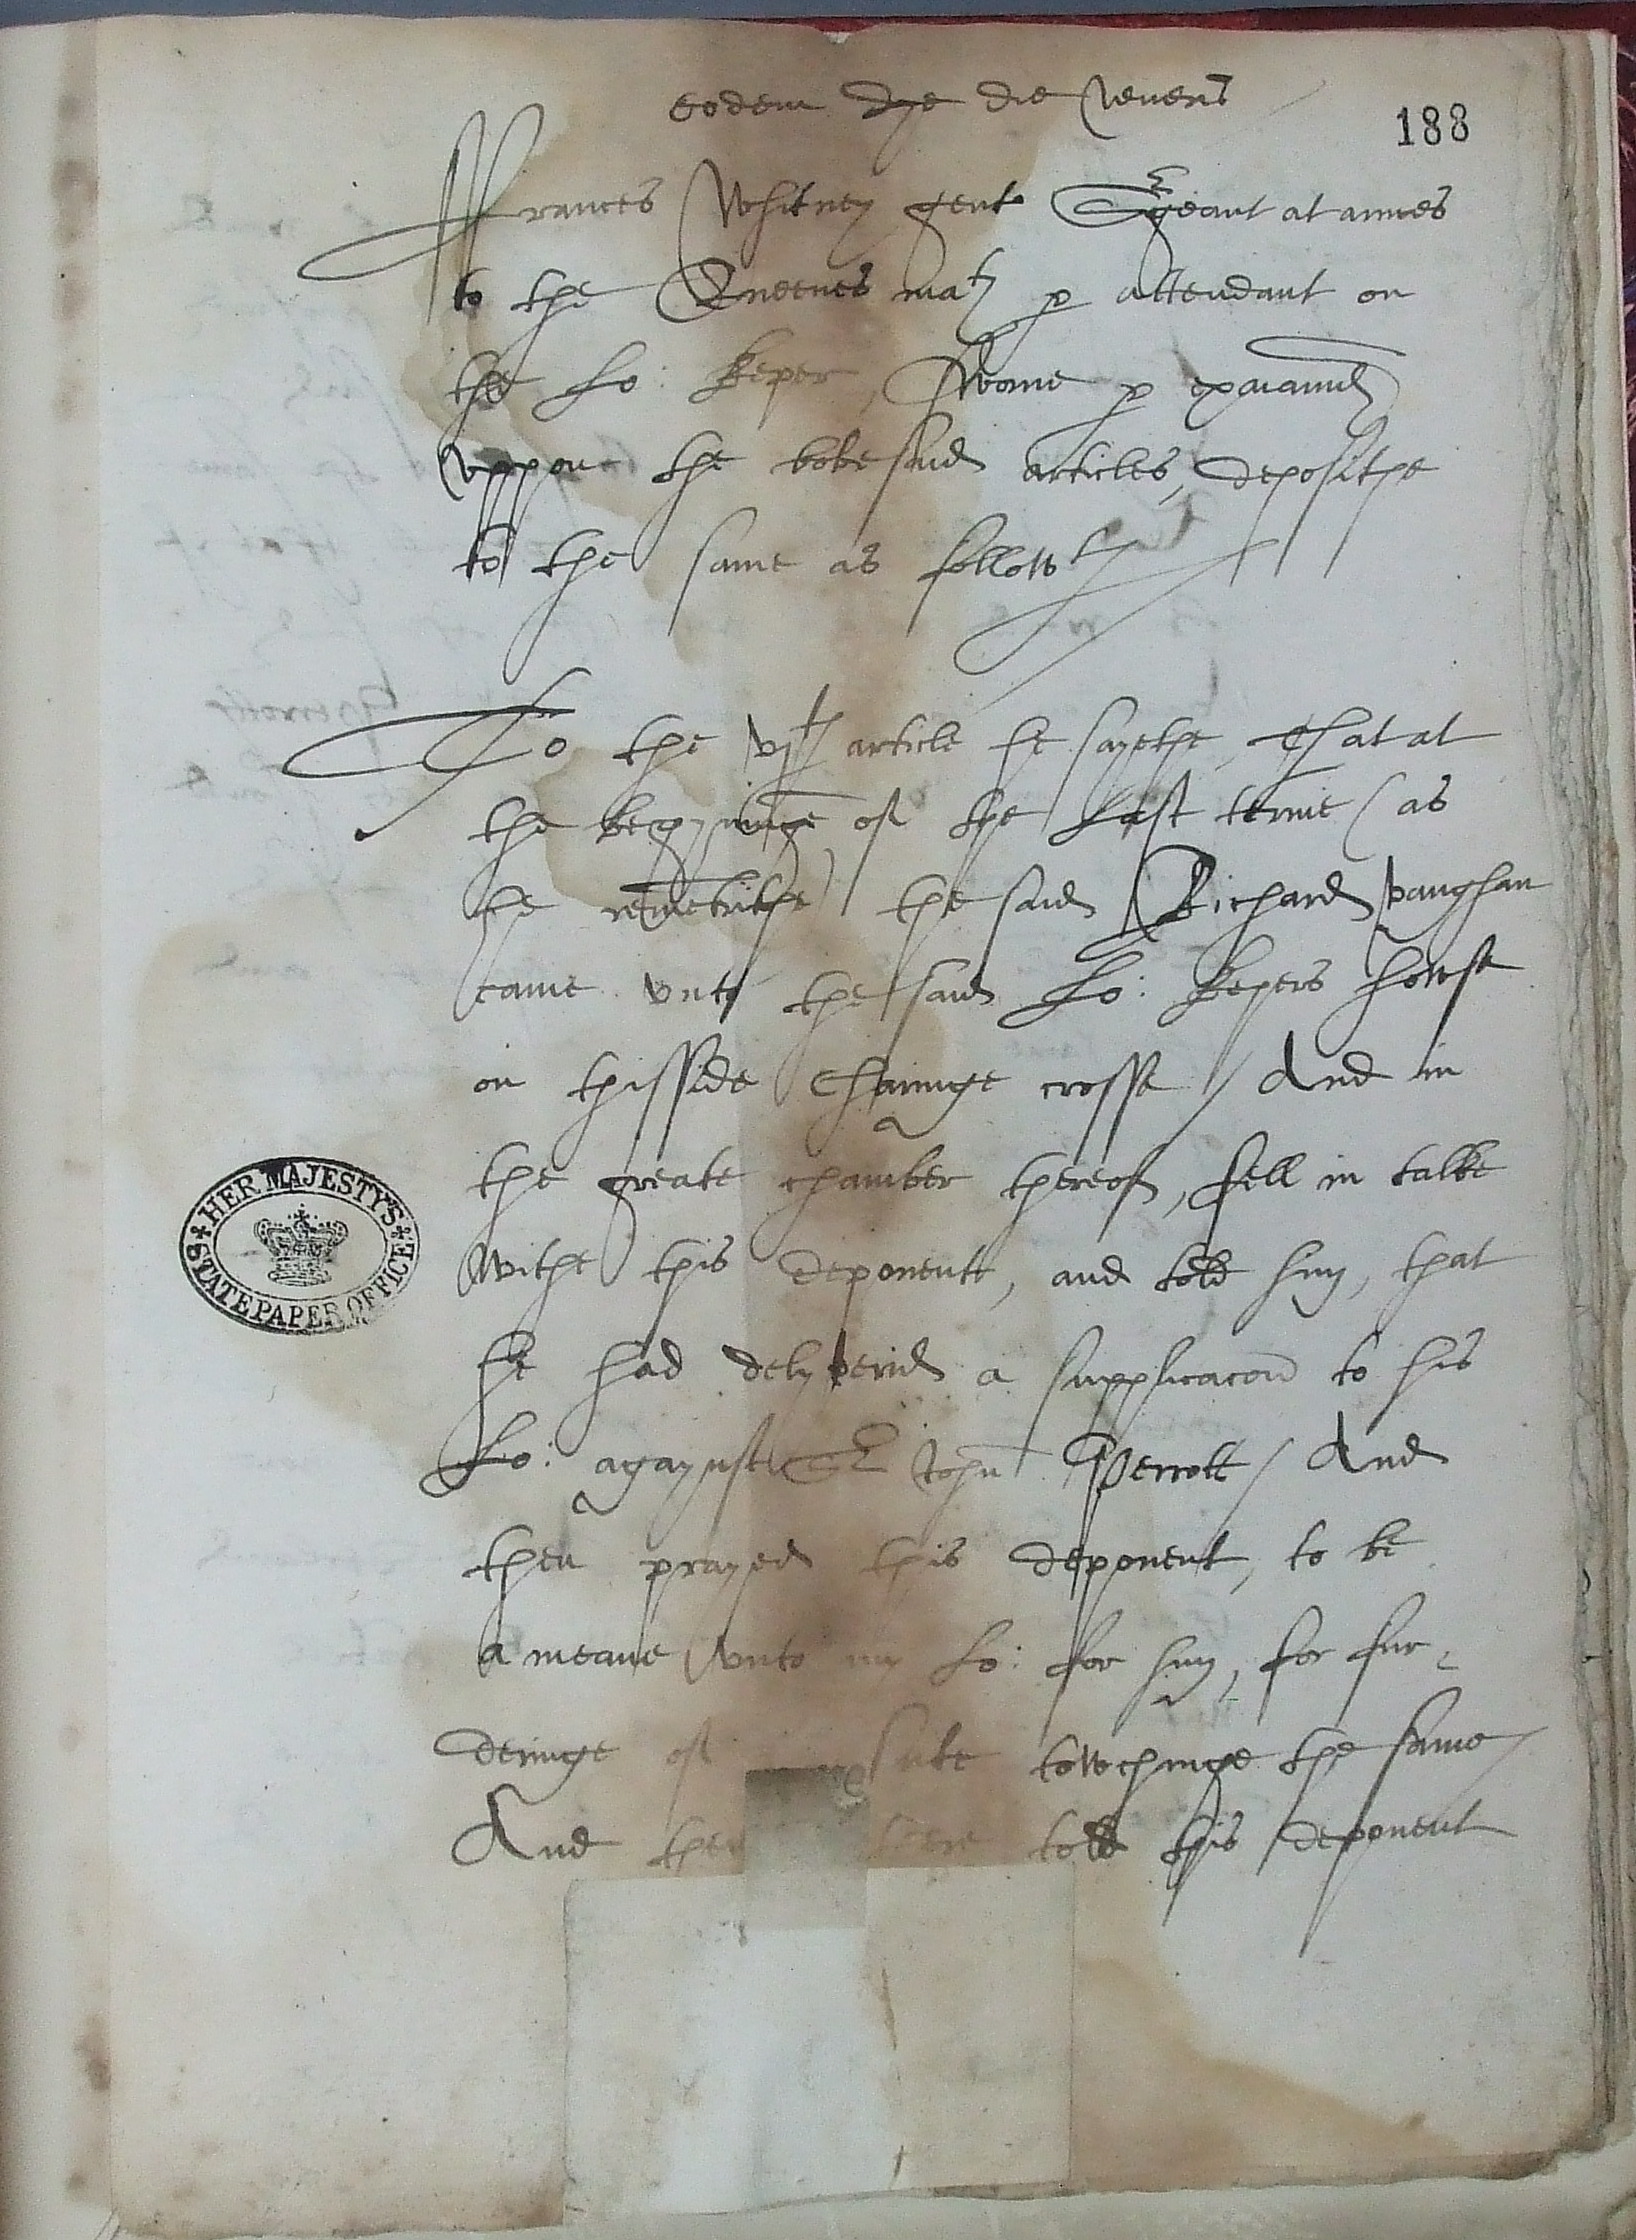 eodem dye die veneris
188
Frances Whitney gent Sergeant at armes
to the Queenes matie & attendant on
the Lo: keper, sworne & examined
vppon the bobesaid articles, deposithe
to the same as followth
To the vjth article he saythe, That at
the begynninge of the last terme (as
he remembrithe) the said Richard vaughan
came vnto the said Lo: kepers howse
on thisside Charinge crosse / And in
the greate chamber thereof, fell in talke
withe this deponente, and told hym, that
he had delyverid a supplicacon to his
Lo: agaynste Sr John Perrott / And
then prayed this deponent, to be
a meane vnto my Lo: for hym, for fur-
deringe of sute towchinge the same
And then there told this deponent
HER MAJESTY'S STATE PAPER OFFICE